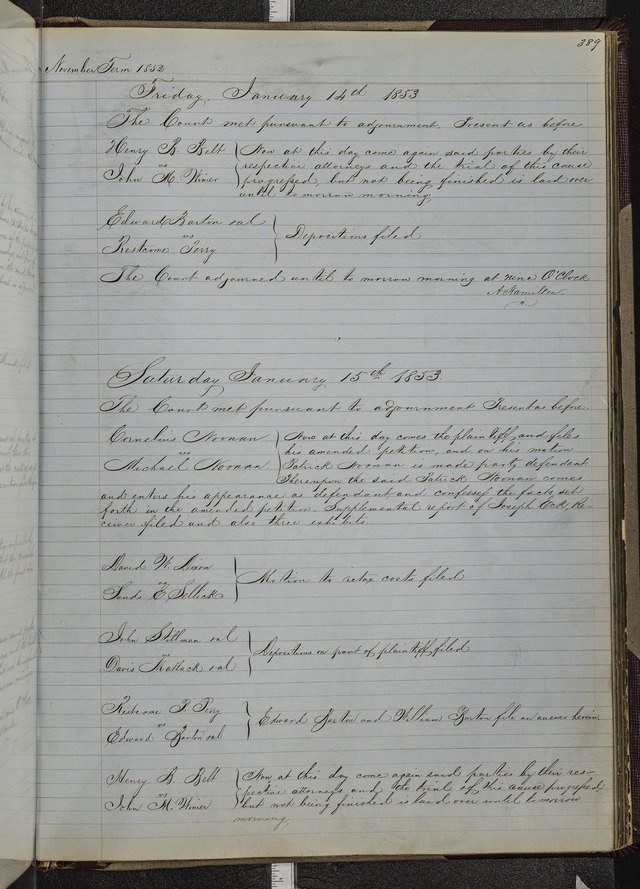 389
November Term 1852
Friday, January 14th 1853
The Court met pursuant to adjournment. Present as before
Henry B. Belt
vs
John M. Wimer
Now at this day come again said parties by their
respective attorneys and the trial of this cause
progressed, but not being finished is laid over
until tomorrow morning
Edward Barton et al
vs
Restcome Perry
Depositions filed
The Court adjourned until to morrow morning at nine O'Clock
A Hamilton
Saturday January 15th 1853.
The Court met pursuant to adjournment Present as before.
Cornelius Noonan
vs
Michael Noonan
Now at this day comes the plaintiff, and files
his amended petition, and on his motion
Patrick Noonan is made party defendant
Thereupon the said Patrick Noonan comes
and enters his appearance as defendant and confesses the facts set
forth in the amended petition. Supplemental report of Joseph Re-
ceiver filed and also three exhibits.
David W. Dixon
vs
E. Selleck
Motion to retax costs filed
John Stillman et al
vs
Davis Matlack et al
Depositions on part of plaintiff filed
Restcome Perry
vs
Edward Barton et al
Edward Barton and William Barton file an answer herein
Henry B. Belt
vs
John M. Wimer
Now at this day come again said parties by their res-
pective attorneys and the trial of this cause progressed
but not being finished is laid over until tomorrow
morning